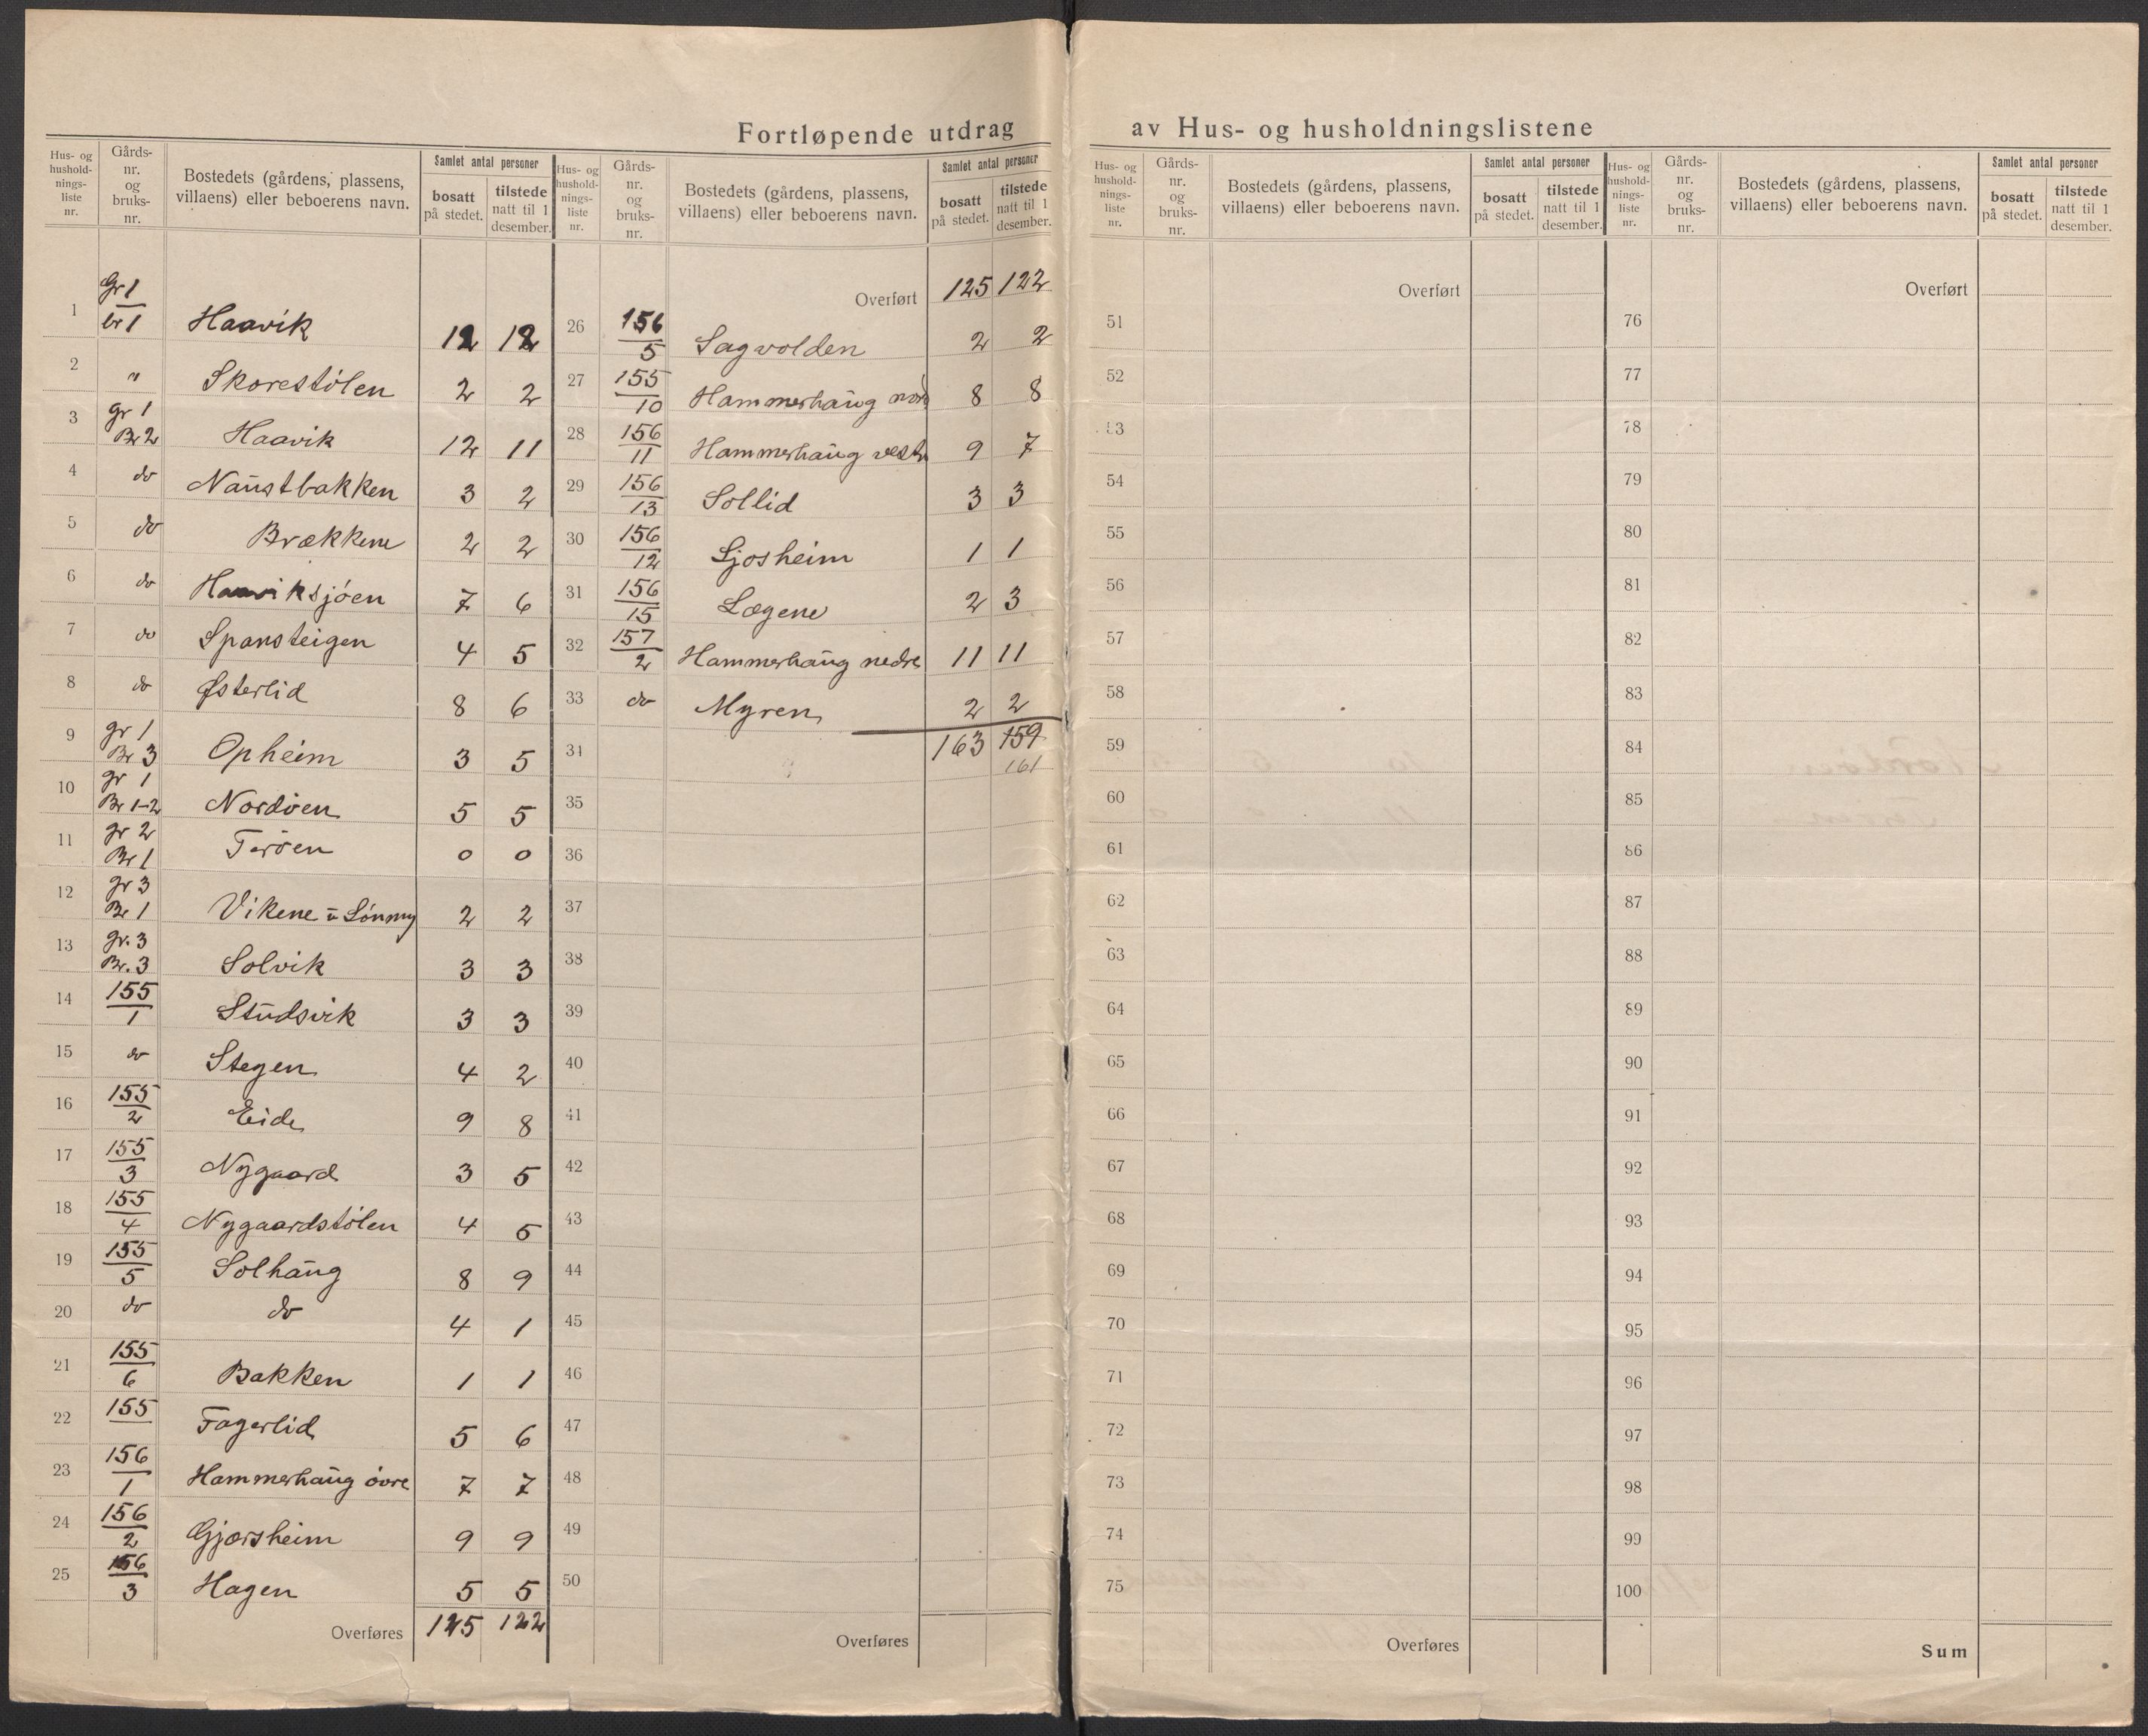 Fortløpende utdrag av Hus- og husholdningslistene
Hus- og hushold- nings- liste nr. | Gårds- nr. og bruks- nr. | Bostedets (gårdens, plassens, villaens) eller beboerens navn. | Samlet antal personer | bosatt på stedet. | tilstede natt til 1 desember.
1 | Gr 1 br 1 | Haavik | 12 | 12
2 | " | Skorestølen | 2 | 2
3 | gr 1 Br 2 | Haavik | 12 | 11
4 | do | Naustbakken | 3 | 2
5 | do | Brækkene | 2 | 2
6 | do | Haaviksjøen | 7 | 6
7 | do | Spansteigen | 4 | 5
8 | do | Østerlid | 8 | 6
9 | gr 1 Br 3 | Opheim | 3 | 5
10 | gr 1 Br 1-2 | Nordøen | 5 | 5
11 | gr 2 Br 1 | Terøen | 0 | 0
12 | gr 3 Br 1 | Vikene | 2 | 2
13 | gr. 3 Br. 3 | Solvik | 3 | 3
14 | 155/1 | Studsvik | 3 | 3
15 | do | Stegen | 4 | 2
16 | 155/2 | Eide | 9 | 8
17 | 155/3 | Nygaard | 3 | 5
18 | 155/4 | Nygaardstølen | 4 | 5
19 | 155/5 | Solhaug | 8 | 9
20 | do | do | 4 | 1
21 | 155/6 | Bakken | 1 | 1
22 | 155 | Fagerlid | 5 | 6
23 | 156/1 | Hammerhaug øvre | 7 | 7
24 | 156/2 | Gjærsheim | 9 | 9
25 | 156/3 | Hagen | 5 | 5
Overføres 125 122
Hus- og hushold- nings- liste nr. | Gårds- nr. og bruks- nr. | Bostedets (gårdens, plassens, villaens) eller beboerens navn. | Samlet antal personer | bosatt på stedet. | tilstede natt til 1 desember.
Overført 125 122
26 | 156/5 | Sagvolden | 2 | 2
27 | 155/10 | Hammerhaug nord | 8 | 8
28 | 156/11 | Hammerhaug vestr | 9 | 7
29 | 156/13 | Sollid | 3 | 3
30 | 156/12 | Ljosheim | 1 | 1
31 | 156/15 | Lægene | 2 | 3
32 | 157/2 | Hammerhaug nedre | 11 | 11
33 | do | Myren | 2 | 2
34 | 163 | 159
161
35
36
37
38
39
40
41
42
43
44
45
46
47
48
49
50
Overføres
Hus- og hushold- nings- liste nr. | Gårds- nr. og bruks- nr. | Bostedets (gårdens, plassens, villaens) eller beboerens navn. | Samlet antal personer | bosatt på stedet. | tilstede natt til 1 desember.
Overført
51
52
53
54
55
56
57
58
59
60
61
62
63
64
65
66
67
68
69
70
71
72
73
74
75
Overføres
Hus- og hushold- nings- liste nr. | Gårds- nr. og bruks- nr. | Bostedets (gårdens, plassens, villaens) eller beboerens navn. | Samlet antal personer | bosatt på stedet. | tilstede natt til 1 desember.
Overført
76
77
78
79
80
81
82
83
84
85
86
87
88
89
90
91
92
93
94
95
96
97
98
99
100
Sum